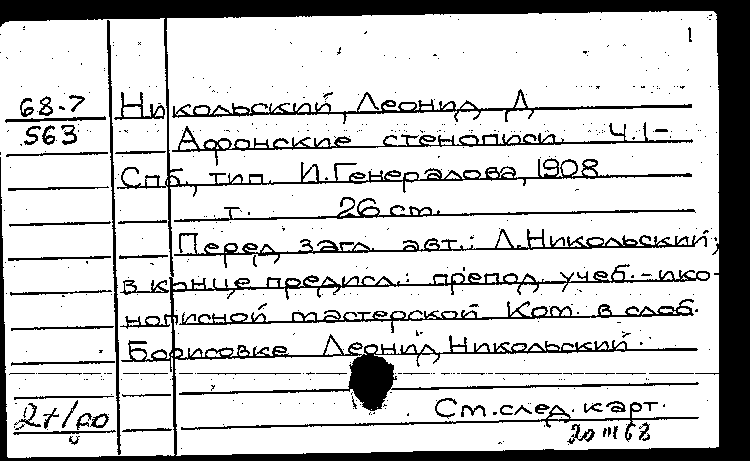 1
68-7 Никольский, Леонид Д.
563 Афонские стенописи. Ч.1-
Спб., тип. И.Генералова, 1908
т. 26 см.
Перед загл. авт.: Л.Никольский;
в конце предисл.: препод. учеб.-ико-
нописной мастерской Ком. в слоб.
Борисовке Леонид Никольский.
См.след.карт.
20 III 68